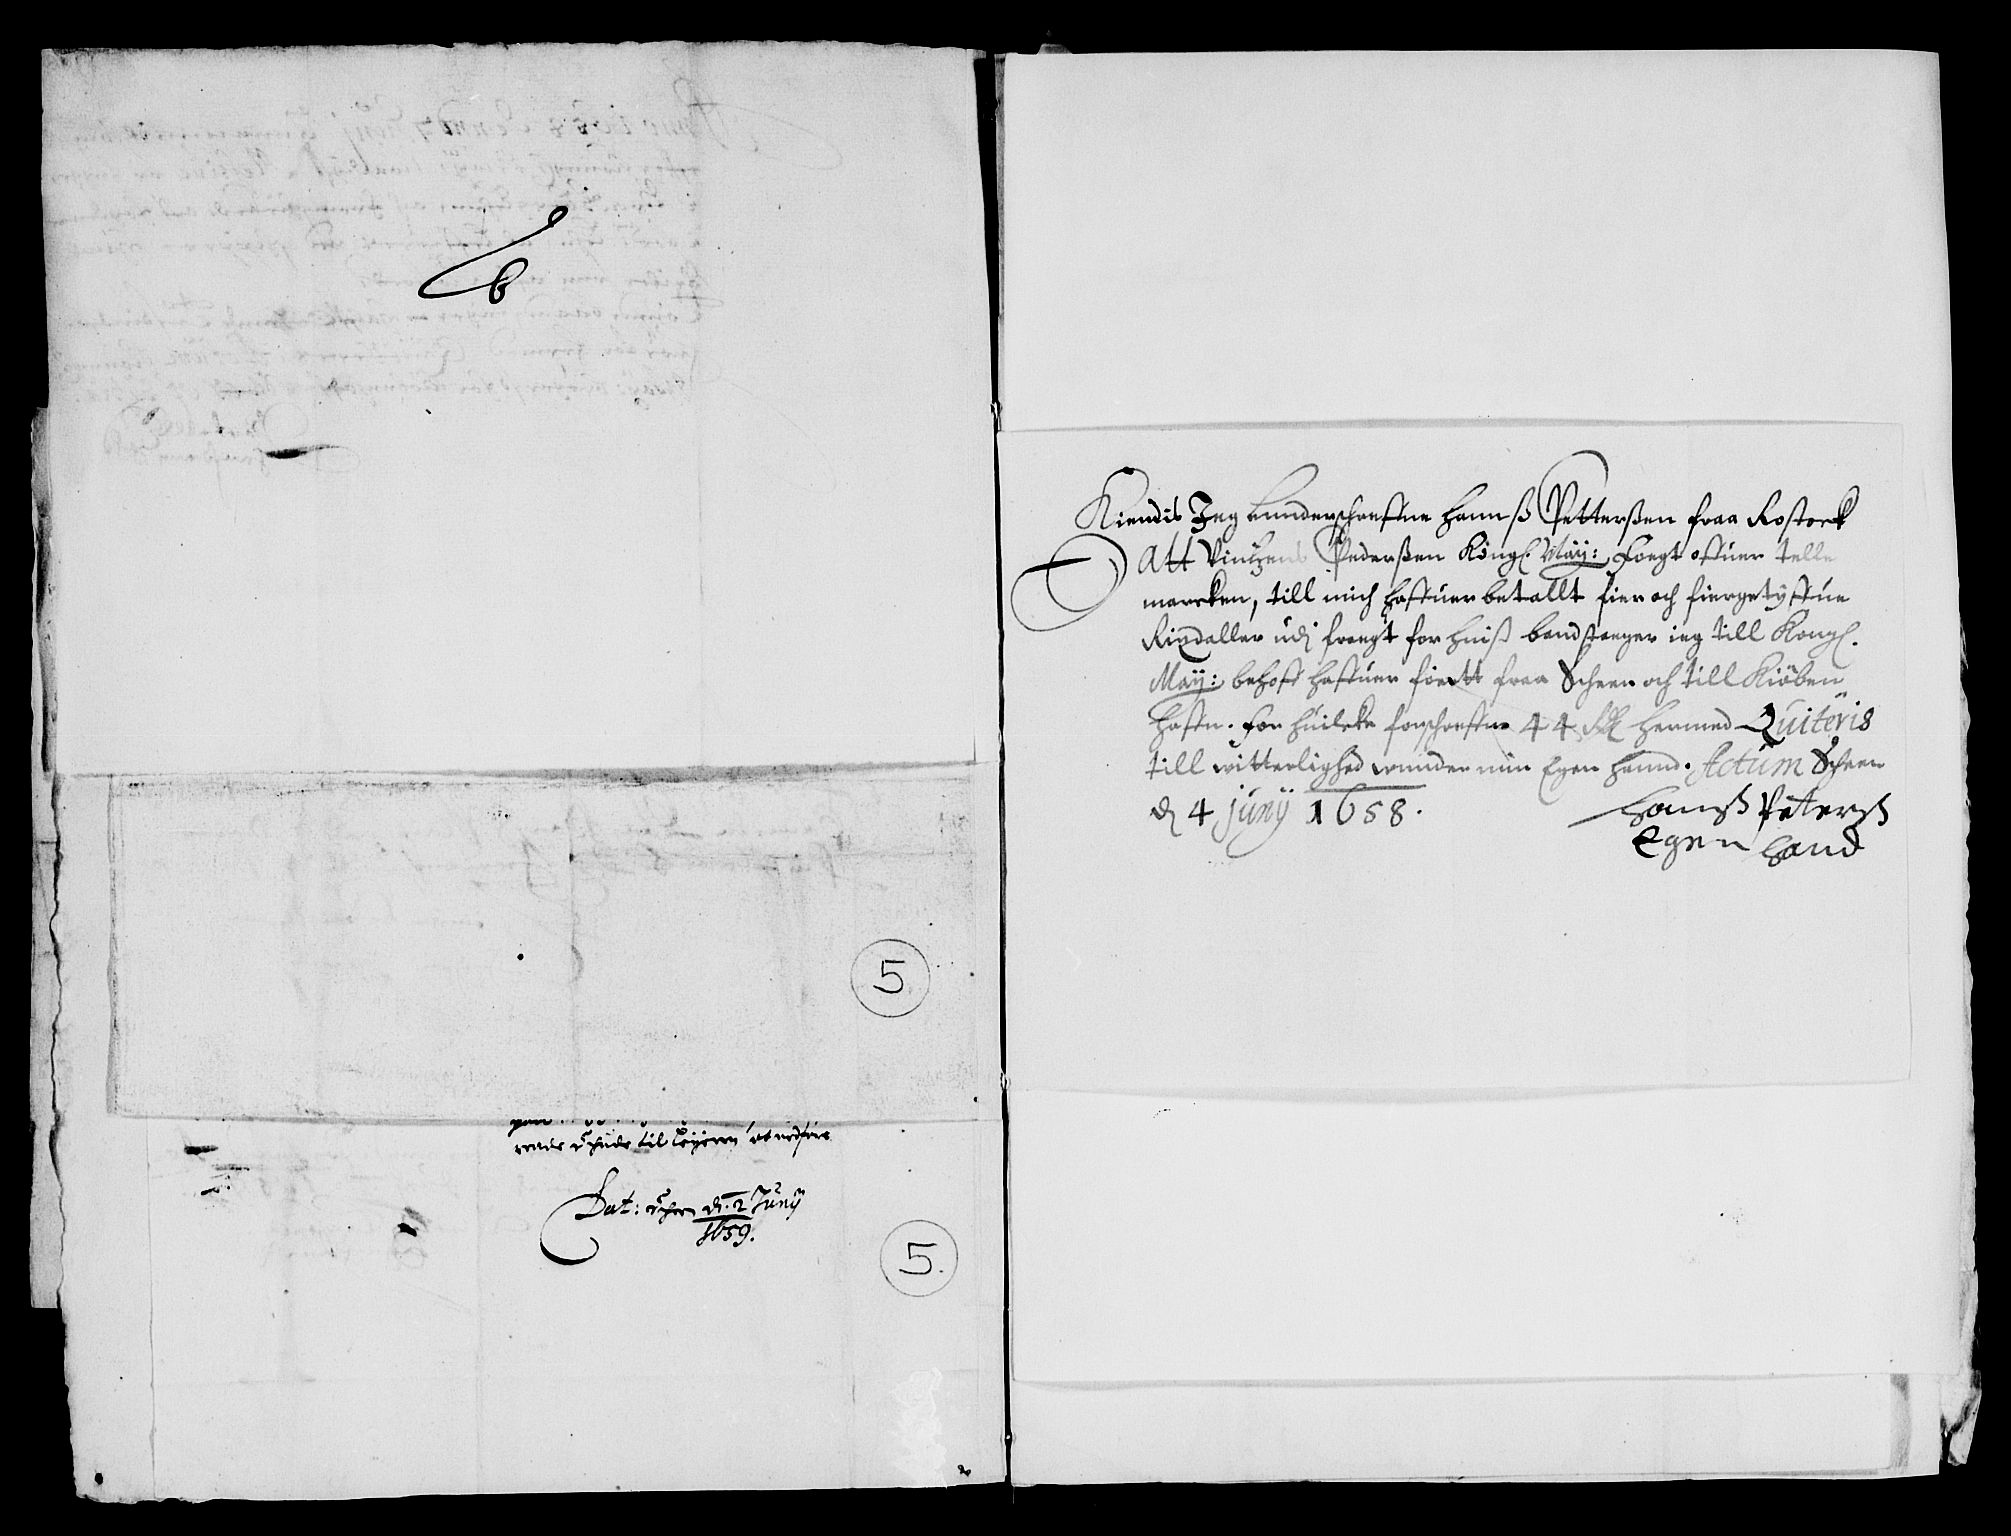 6
5
rende Schude til Leyeren at nedføre
Dat: Scheen d. 2 Junÿ
1659.
5.
Kiendis Jeg Eunderschreffne Hannß Petterßen fraa Rostock
Att Vintzens Pederßen Kongl. Maÿ: Foegt offuer telle
marcken, till mich haffuer betallt fier och fiergetÿffue
Rixdaller udj fraegt for huiß bandstaeger ieg till Kongl.
Maÿ: behoff haffuer føertt fraa Scheen och till Kiøben
haffn. For huilcke forschreffne 44 Rdl hermed Quiteris
till witterlighed wunder min Egen Haand. Actum Scheen
d 4 junÿ 1658.
Hanß Peterß
Egen Hand